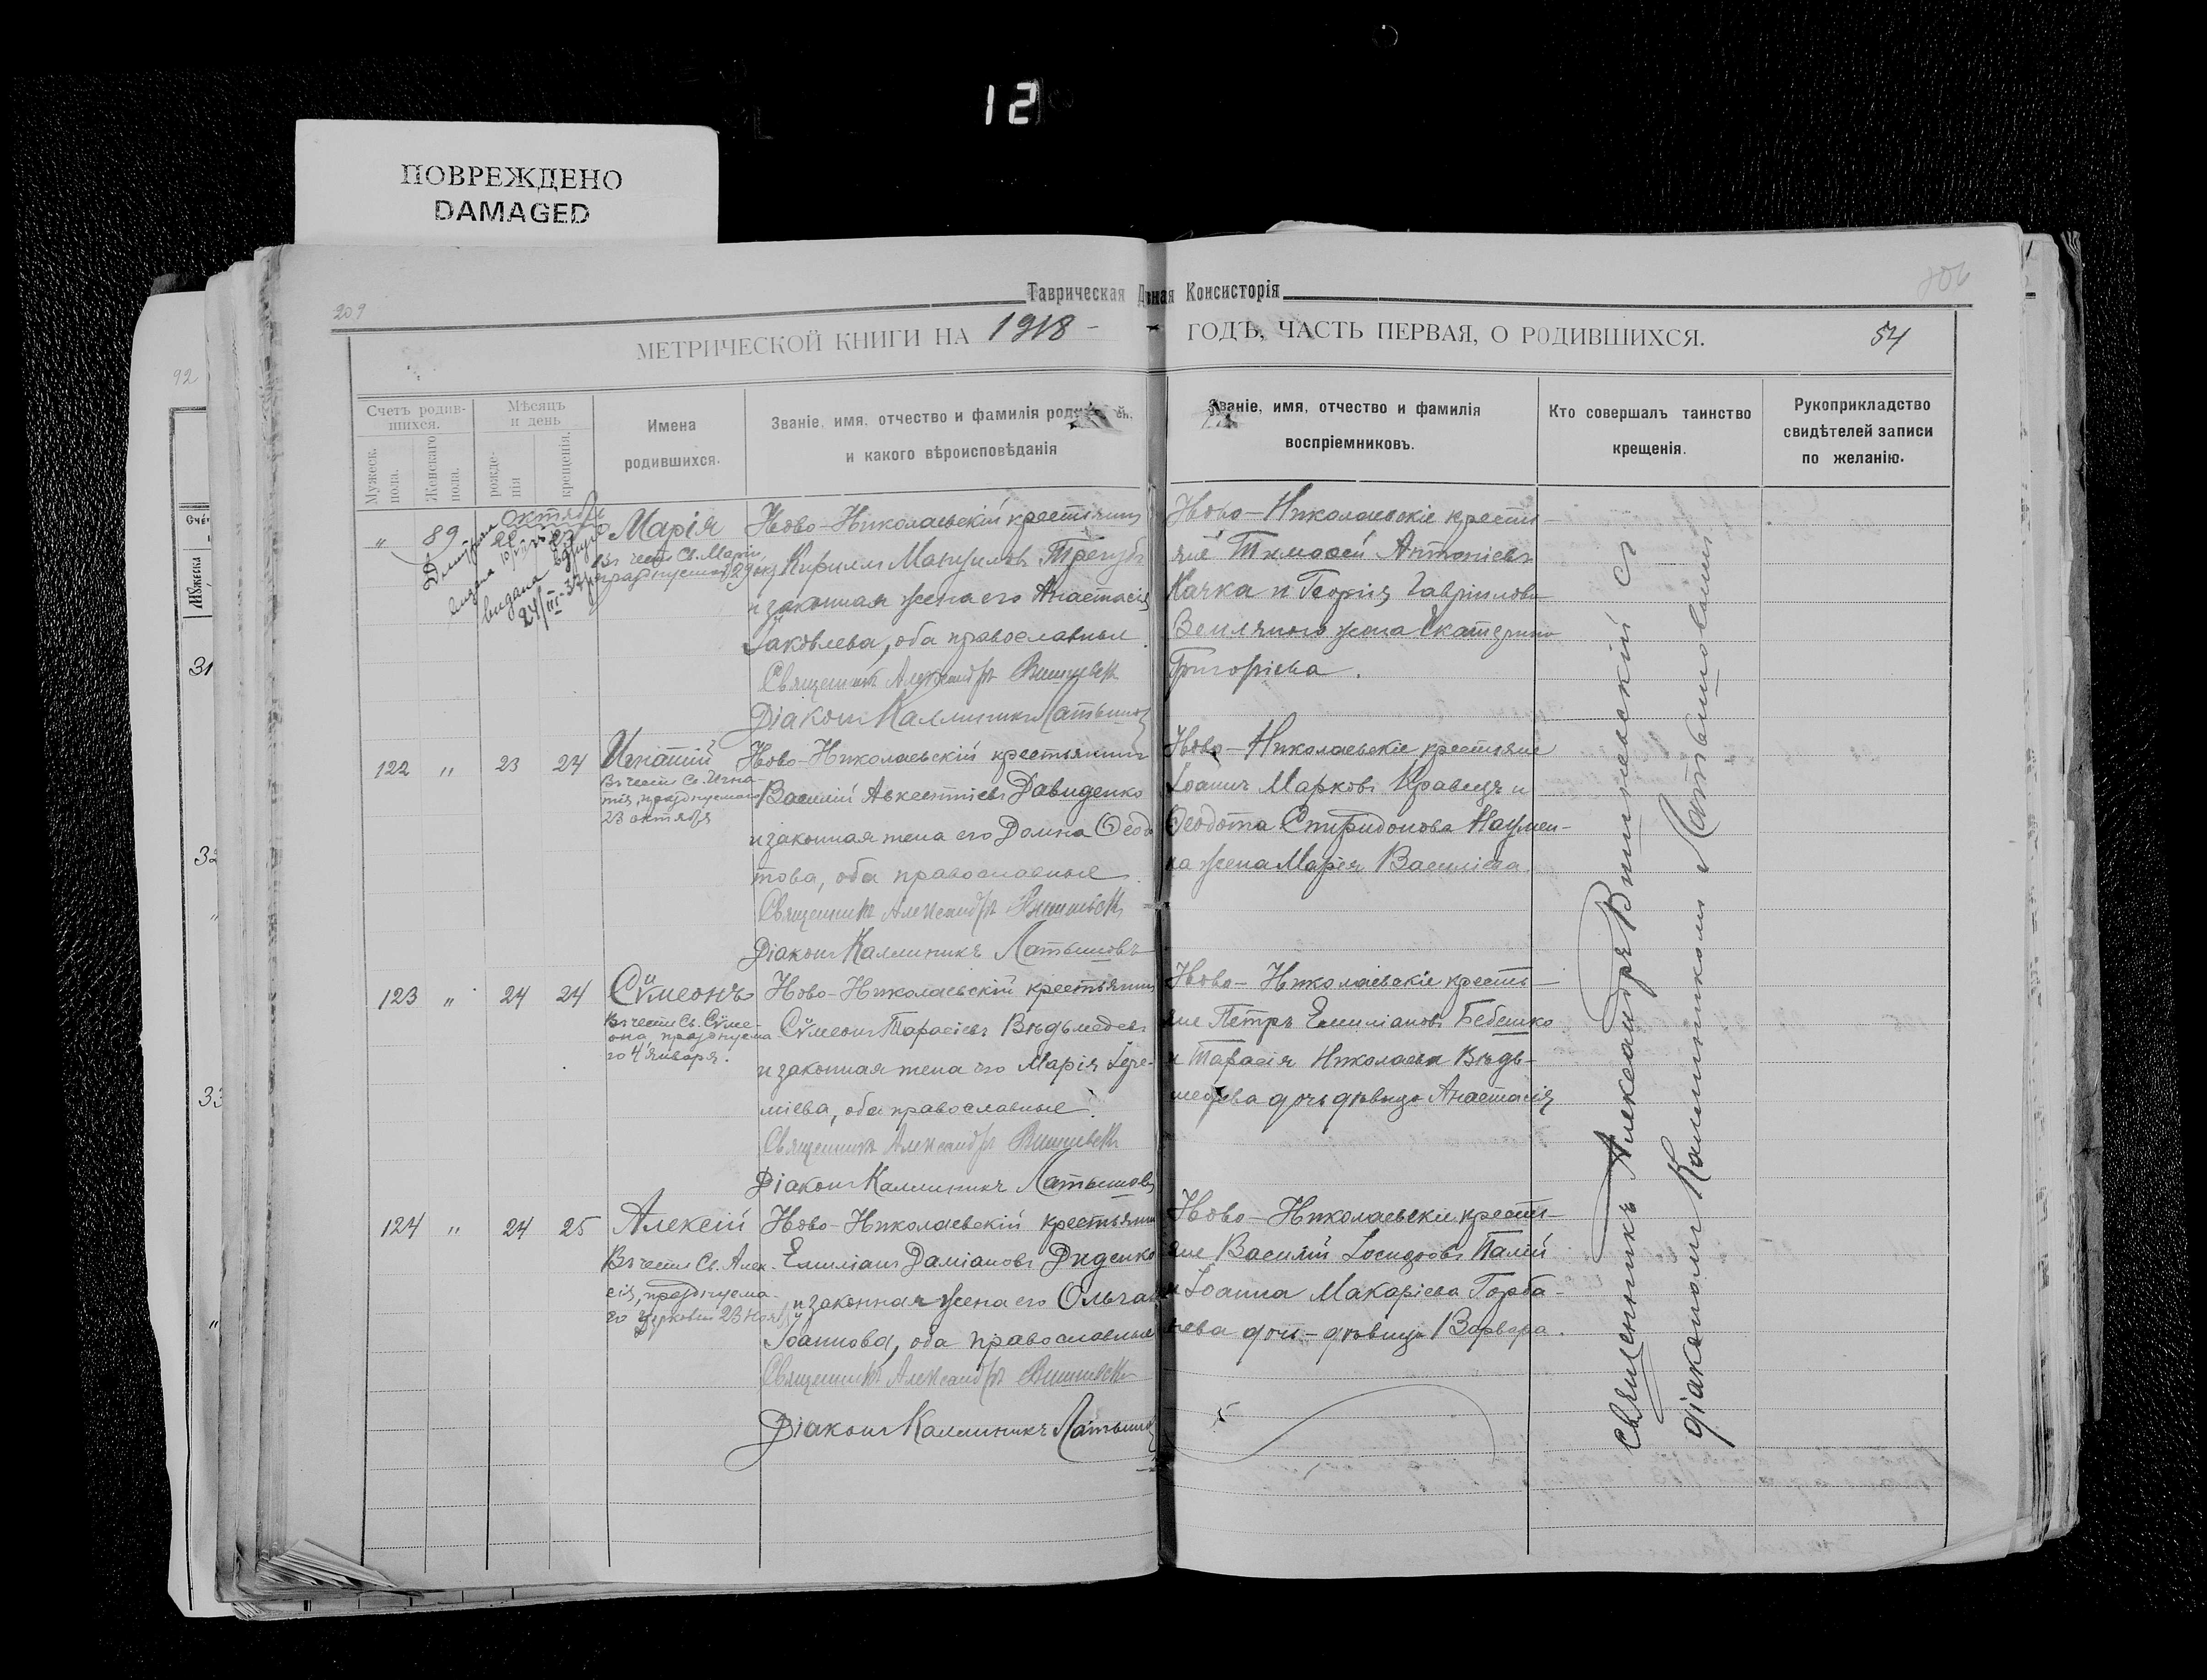 12
ПОВРЕЖДЕНО
DAMAGED
209
Таврическая Д вная Консисторія
МЕТРИЧЕСКОЙ КНИГИ НА 1918 ГОДЪ, ЧАСТЬ ПЕРВАЯ, О РОДИВШИХСЯ.
54
92
Счетъ родив-
шихся.
Мѣсяцъ
и день
Мужеск.
пола.
Женскаго
пола.
рожде-
нія
крещенія.
Имена
родившихся.
Званіе, имя, отчество и фамилія роди ей,
и какого вѣроисповѣданія
Званіе, имя, отчество и фамилія
воспріемниковъ.
Кто совершалъ таинство
крещенія.
Рукоприкладство
свидѣтелей записи
по желанію.
31
32
33
октября
„ 89 22
Марія
въ честь Св. Маріи,
празднуемой 29 окт
выдана
24/III-37
Ново-Николаевскій крестьянинъ
Кириллъ
и законная жена его Анастасія
Іаковлева, оба православные
Священникъ Александръ Вишневск
Діаконъ Каллиникъ Латышов
Ново-Николаевскіе кресть-
яне Тимоѳей Антоніевъ
Качка и Георгія Гавріилова
жена Екатерина
Григоріева.
122 „ 23 24
Игнатій
Въ честь Св. Игна-
тія, празднуемаго
23 октября
Ново-Николаевскій крестьянинъ
Василій Авксентіевъ Давиденко
и законная жена его Домна Ѳеодо
това, оба православные
Священникъ Александръ Вишневск
Діаконъ Каллиникъ Латышовъ
Ново-Николаевскіе крестьяне
Іоаннъ Марковъ Кравецъ и
Ѳеодота Спиридонова Наумен-
ка жена Марія Василіева.
123 „ 24 24
Сѵмеонъ
Въ честь Св. Сѵме-
она, празднуема
го 4 января.
Ново-Николаевскій крестьянинъ
Сѵмеонъ Тарасіевъ Вѣдьмедевъ
и законная жена его Марія Іере-
міева, оба православные.
Священникъ Александръ Вишневск
Діаконъ Каллиникъ Латышовъ
Ново-Николаевскіе кресть-
яне Петръ Емиліановъ Бебешко
и Тарасія Николаева Вѣдь-
медева дочь дѣвица Анастасія
124 „ 24 25
Алексій
Въ честь Св. Алек-
сія, празднуема-
го церковью 23 нояб
Ново-Николаевскій крестьянинъ
Емиліанъ Даміановъ Диденко
и законная жена его Ольга
Іоаннова, оба православные
Священникъ Александръ Вишневск
Діаконъ Каллиникъ Латышов
Ново-Николаевскіе кресть-
яне Василій Палій
и Іоанна Макаріева Горба-
чева дочь-дѣвица Варвара.
Священникъ Александръ Вишневскій съ
діакономъ Каллиникомъ Латышовымъ